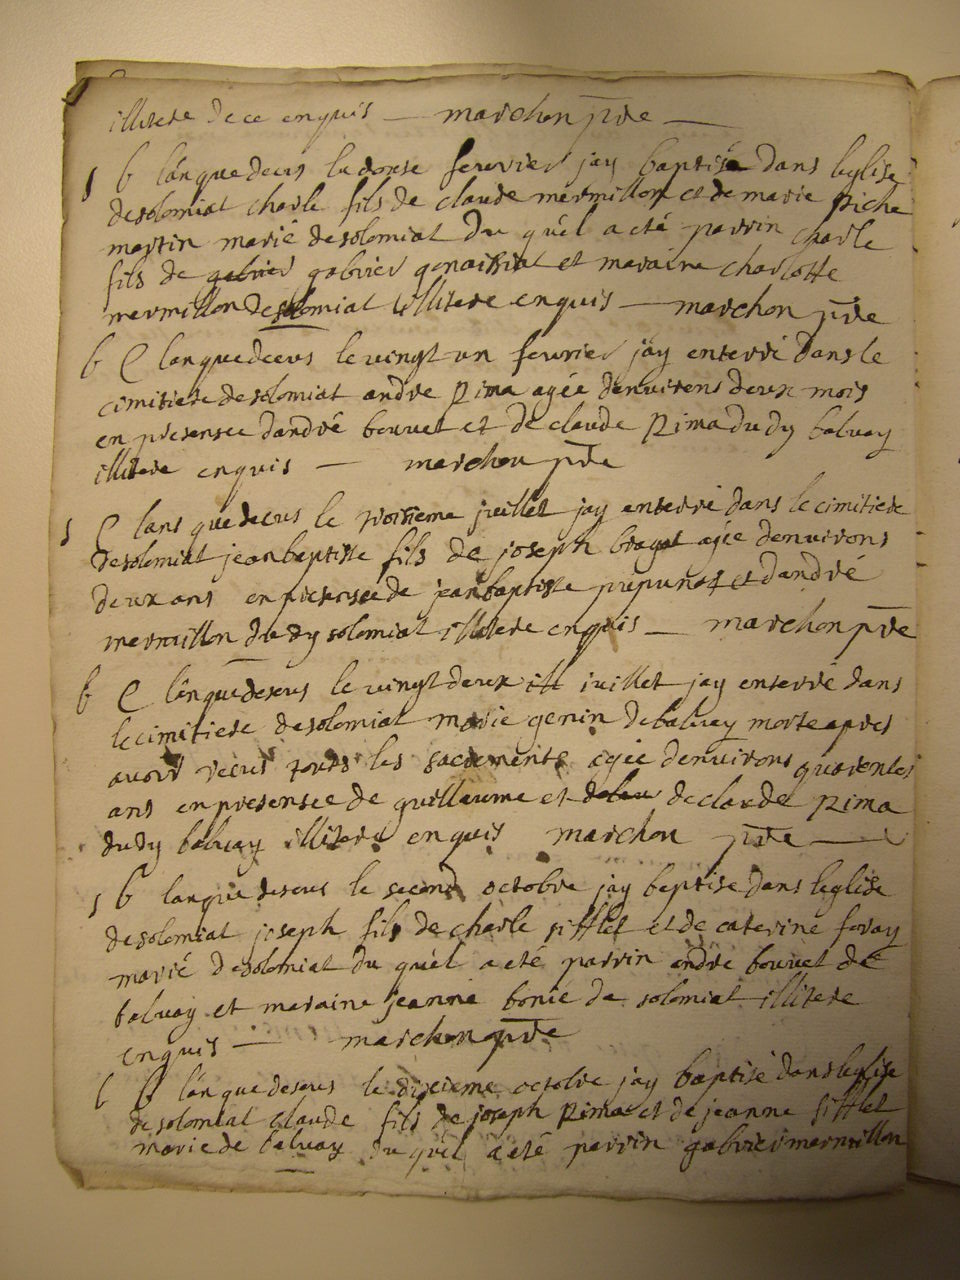 illitere de ce enquis — marchon pre —
s b lan que decus le donse feuvrier jay baptisé dans leglise
de solomiat charle fils de claude mermillon et de marie piche
martin marié de solomiat du quel a eté parrin charle
fils de gabriel gabriel genaissiat et maraine charlotte
mermillon de solomiat illitere enquis — marchon pre
b C lan que decus le vingt un feurier jay enterré dans le
cimitiere de solomiat andre pima agée denvirons deux mois
en presensce dandré bouvet et de claude pima du dy balvay
illitere enquis — marchon pre
s C lans que decus le troisieme juillet jay enterré dans le cimitiere
de solomiat jean baptiste fils de joseph agée denvirons
deux ans en presensce de jean baptiste et dandré
mermillon du dy solomiat illitere enquis — marchon pre
b C lan que desus le vingt deux juillet jay enterré dans
le cimitiere de solomiat marie genin de balvay morte apres
avoir recus touts les sacrements agée denvirons quarentes
ans en presensce de guillaume et de claude pima
du dy balvay illitere enquis marchon pre —
s b lan que desus le second octobre jay baptise dans leglise
de solomiat joseph fils de charle sifflet et de caterine foray
marié de solomiat du quel a eté parrin andre bouvet de
balvay et maraine jeanne bonie de solomiat illitere
enquis — marchon pre
b b lan que desus le dixieme octobre jay baptisé dans leglise
de solomiat claude fils de joseph pima et de jeanne sifflet
marie de balvay du quel a eté parrin gabriel mermillon